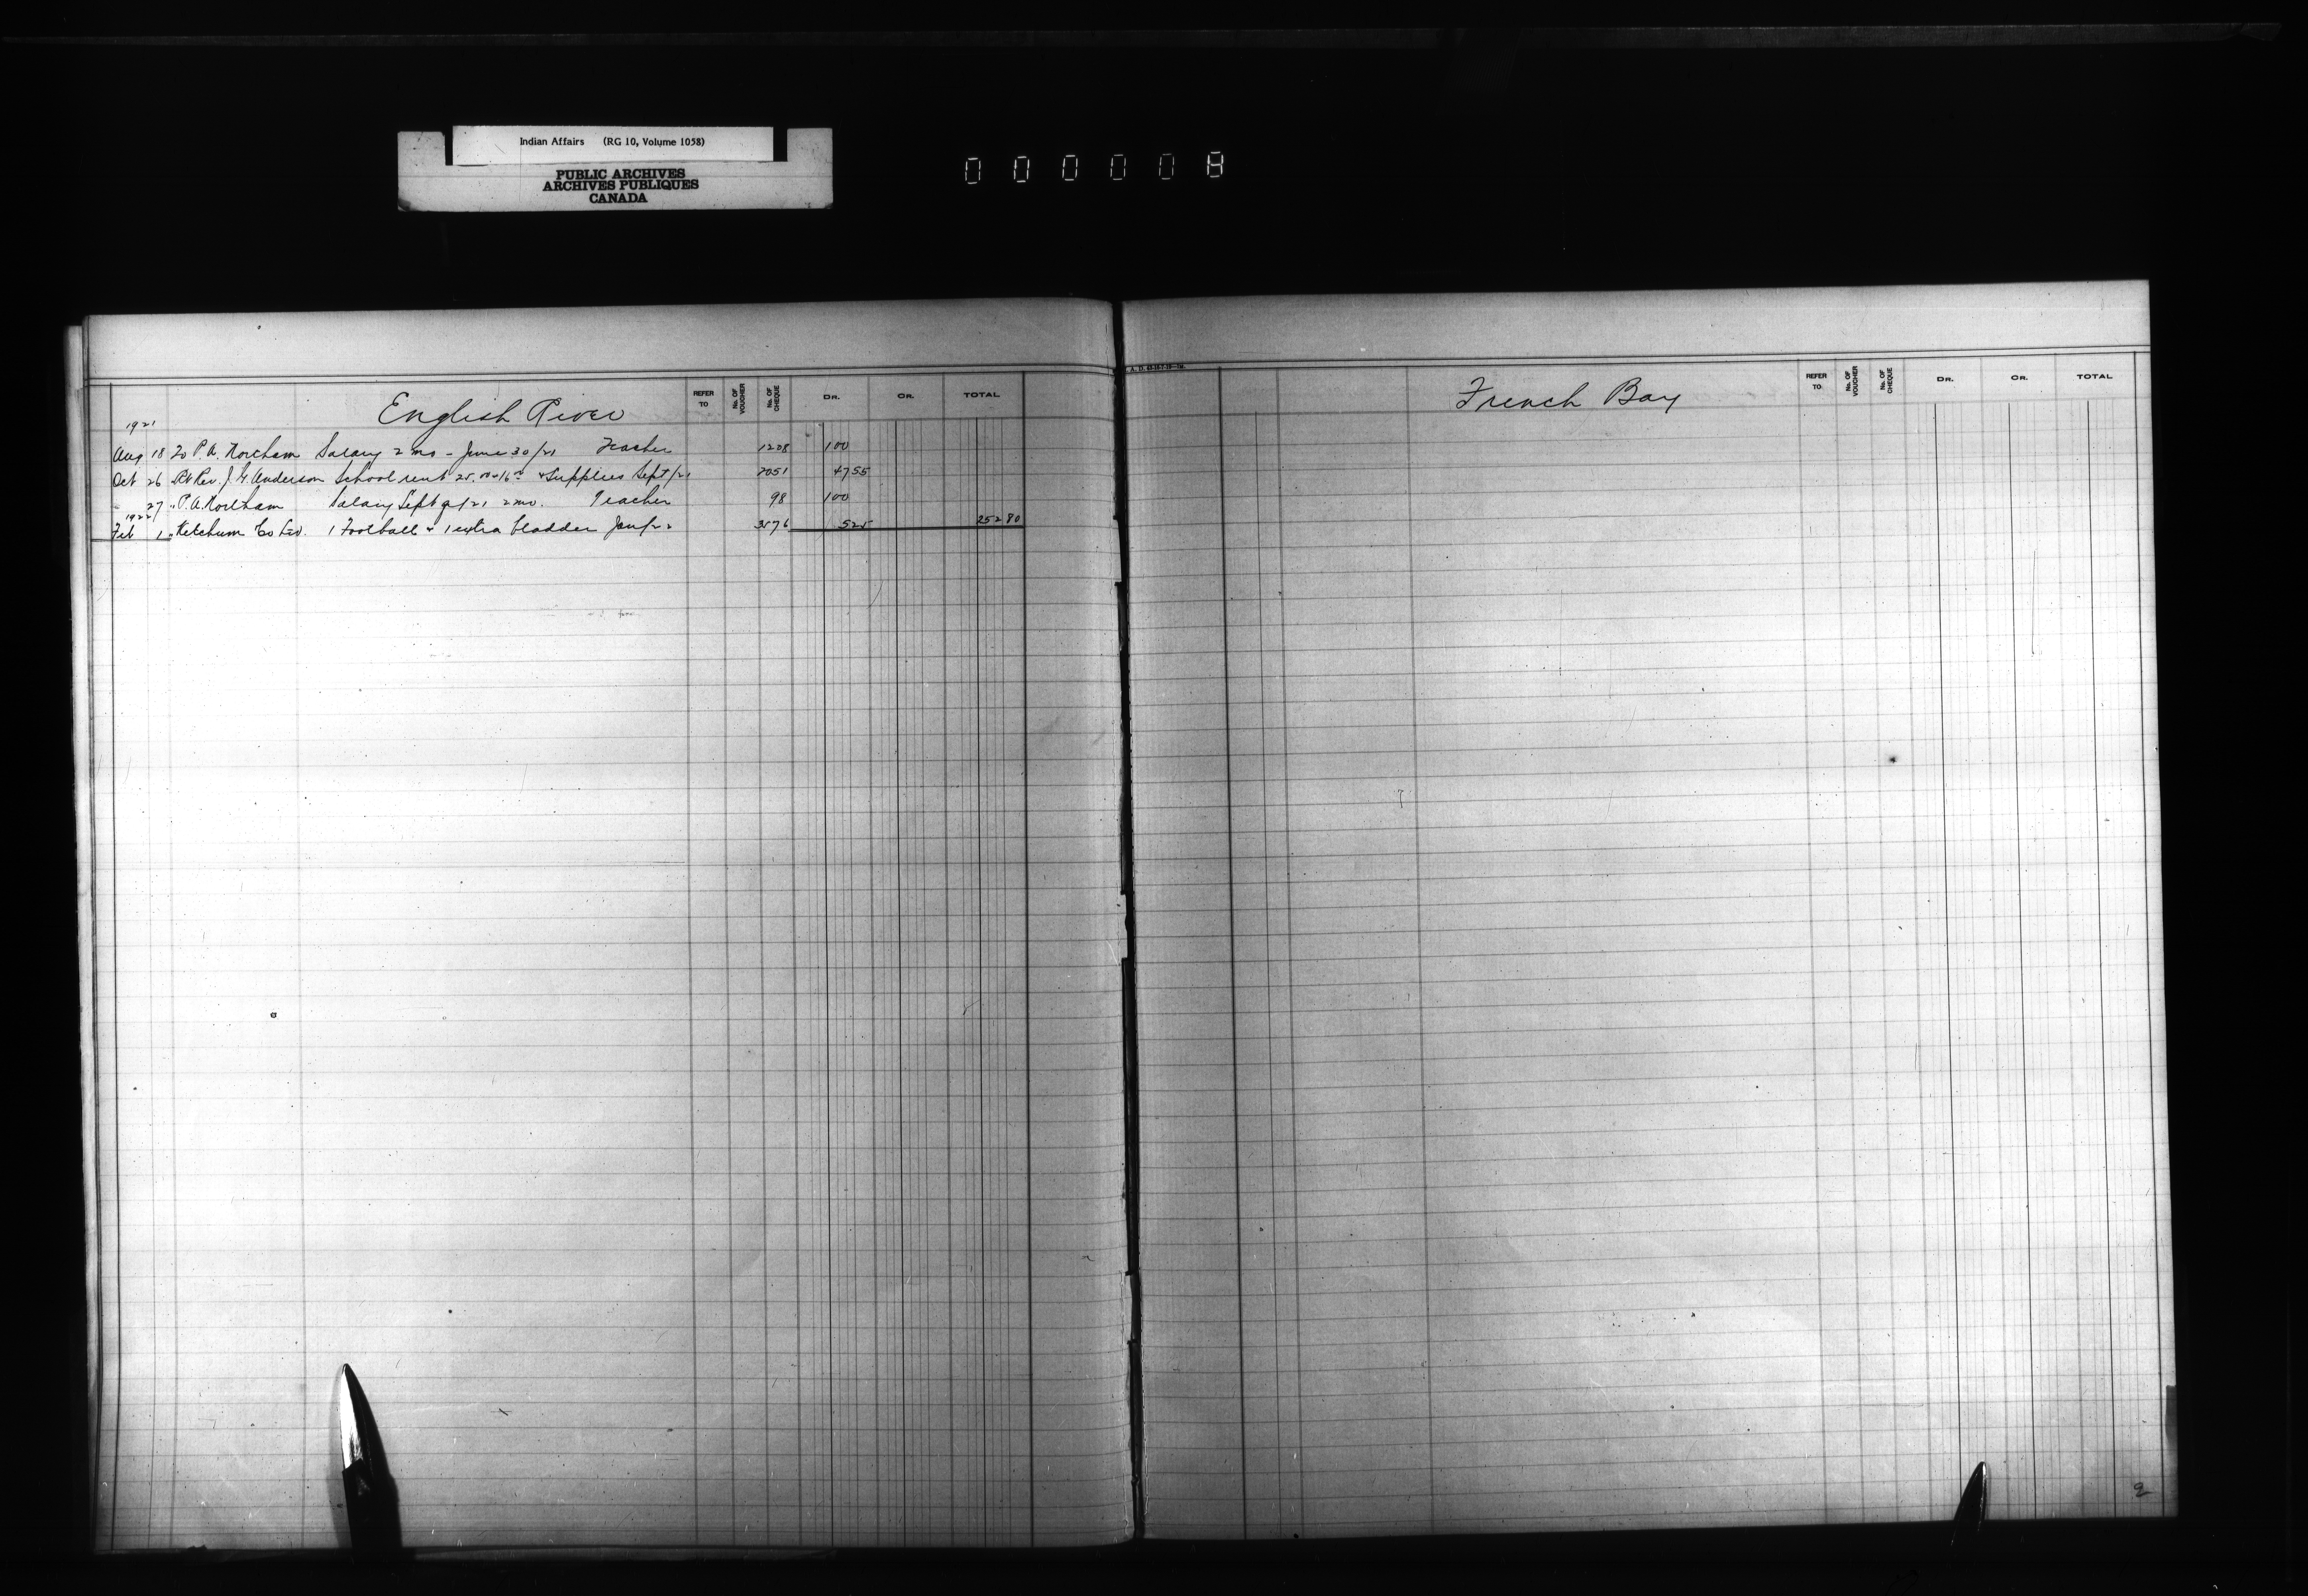 Indian Affairs (RG 10, Volume 1058)
PUBLIC ARCHIVES
ARCHIVES PUBLIQUES
CANADA
000008
English River
REFER TO No. OF VOUCHER No. OF CHEQUE DR. CR. TOTAL
1921
Aug 18 20 P.A. Northam Salary 2 mo - June 30/21 Teacher 1208 100
Oct 26 Rt Rev. J. G. Anderson School rent 25.00 - 16 & Supplies Sept/21 2051 47 55
27 " P.A. Northam Salary Sept Q/21 2 mo. Teacher 98 100
1922
Feb 1 " Ketchum Co Ltd. 1 Football & 1 extra bladder Jan/22 3576 5 25 252 80
French Bay
REFER TO No. OF VOUCHER No. OF CHEQUE DR. CR. TOTAL